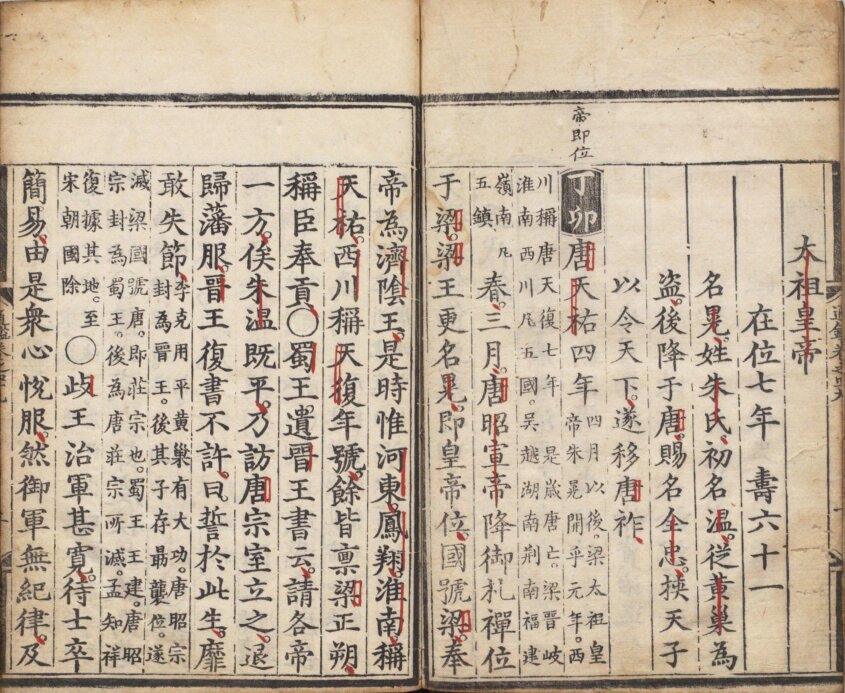 太祖皇帝
在位七年 壽六十一
名晃姓朱氏初名溫從黃巢為
盜後降于唐賜名全忠挾天子
以令天下遂移唐祚
帝即位
丁卯唐天祐四年
四月以後梁太祖皇
帝朱晃開平元年西
川稱唐天復七年是歲唐亡梁晉岐
淮南西川凡五國吳越湖南荆南福建
嶺南凡
五鎮
春三月唐昭宣帝降御札禪位
于梁梁王更名晃即皇帝位國號梁奉
帝為濟陰王是時惟河東鳳翔淮南稱
天祐西川稱天復年號餘皆禀梁正朔
稱臣奉貢○蜀王遺晉王書云請各帝
一方俟朱溫既平乃訪唐宗室立之退
歸藩服晉王復書不許曰誓於此生靡
敢失節
李克用平黃巢有大功唐昭宗
封為晉王後其子存勗襲位遂
滅梁國號唐即莊宗也蜀王王建唐昭
宗封為蜀王後為唐莊宗所滅孟知祥
復據其地至
宋朝國除
○岐王治軍甚寬待士卒
簡易由是衆心悅服然御軍無紀律及